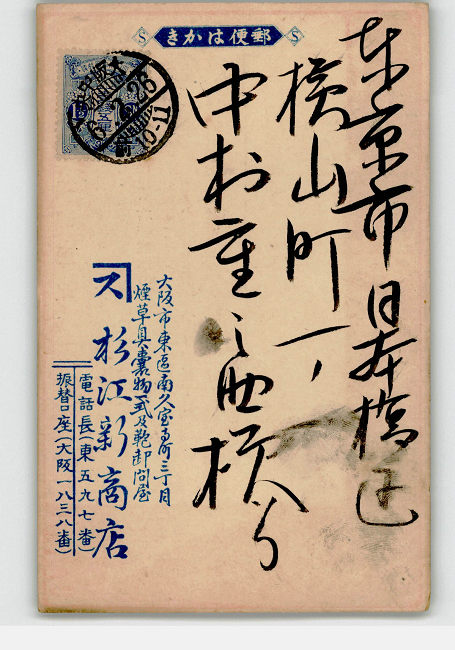 郵便はかき
東京市日本橋区
横山町一ノ
中村重之助様
大阪市東區南久宝寺町三丁目
煙草具嚢物一式及鞄卸問屋
ス 杉江新商店
電話長(東五九七番)
振替口座(大阪一八三八番)